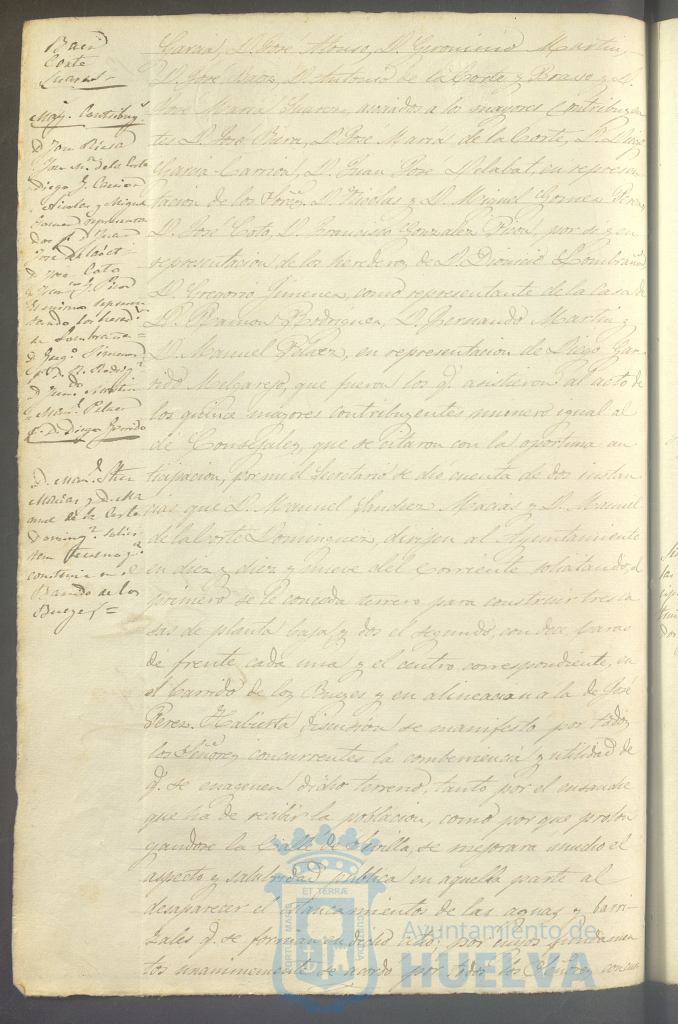 Baez
Corte
Suarez
May.s Contribuy.s
D. José Riesa
José M.ª de la Corte
Diego G. Carrion
Nicolas y Miguel
Gomez representa
dos p.r D. Juan
José Delabat
D. José Coto
D. Fran.co G. Picon
por si y represen
tando los hered.s
de Lombraña
D. Greg.o Jimenez
p.r D. R. Rodrig.z
D. Fern.do Martin
y Man.l Pelaez
p.r D. Diego Garrido
D. Man.l Sanchez
Macias y D. Ma
nuel de la Corte
Doming.z solici
tan terreno p.a
construir en el
Barrio de los
Bueyes =
Garcia, D. José Alonso, D. Geronimo Martin,
D. José Baez, D. Antonio de la Corte y Bravo y D.
José Maria Suarez, asociados a los mayores Contribuyen
tes D. José Riera, D. José Maria de la Corte, D. Diego
Garcia Carrion, D. Juan José Delabat, en represen
tacion de los Sores. D. Nicolas y D. Miguel Gomez Perez,
D. José Coto, D. Francisco Gonzalez Picon, por si y en
representacion de los herederos de D. Dionisio Lombraña,
D. Gregorio Jimenez, como representante de la Casa de
D. Ramon Rodriguez, D. Fernando Martin y
D. Manuel Pelaez, en representacion de Diego Gar
rido Melgarejo, que fueron los q.e asistieron al acto de
los quince mayores contribuyentes numero igual al
de Consejales, que se citaron con la oportuna an
ticipacion, por mi el Secretario se dio cuenta de dos instan
cias que D. Manuel Sanchez Macias y D. Manuel
de la Corte Dominguez, dirijen al Ayuntamiento
en diez y diez y nueve del corriente solicitando, el
primero se le conceda terreno para construir tres ca
sas de planta baja y dos el segundo, con doce varas
de frente cada una y el centro correspondiente, en
el barrido de los Bueyes y en alineacion a la de José
Perez. Habierta discusion se manifestó por todos
los Señores concurrentes la combeniencia y utilidad de
q.e se enagenen dicho terreno, tanto por el ensanche
que ha de recibir la poblacion, como por que prolon
gandose la Calle de Sevilla, se mejorara mucho el
aspecto y salubridad publica en aquella parte al
desaparecer el estancamientos de las aguas y barri
zales q.e se forman en dicho sitio; por cuyos fundamen
tos unanimemente se acordo por todos los Señores concu
PORTUS MARIS
ET TERRÆ
CUSTODIA
Ayuntamiento de
HUELVA